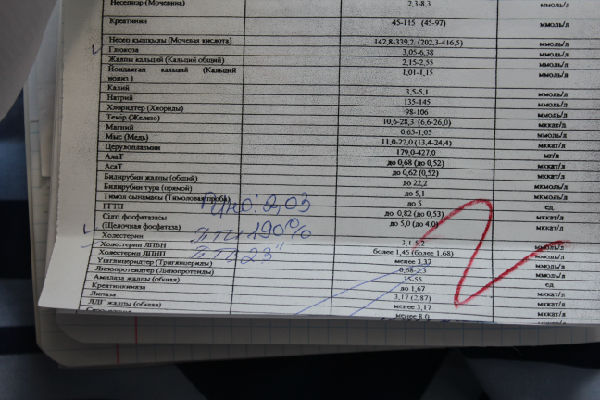 Несепнәр (Мочевина) 2,3-8,3 ммоль/л
Креатинин 45-115 (45-97) ммоль/л
Несеп қышқылы (Мочевая кислота) 142,8-339,2, (202,3-416,5) ммоль/л
Глюкоза 3,05-6,38 ммоль/л
Жалпы кальций (Кальций общий) 2,15-2,55 ммоль/л
Йондалған кальций (Кальций 1,01-1,15 ммоль/л
Калий 3,5-5,1 ммоль/л
Натрий 135-145 ммоль/л
Хлоридтер (Хлориды) 98-106 ммоль/л
Темір (Железо) 10,6-28,3 (6,6-26,0)
Магний 0,65-1,05 ммоль/л
Мыс (Медь) 11,0-22,0 (13,4-24,4)
Церулоплазмин 179,0-427,0 мг/л
АлаТ до 0,68 (до 0,52) мккат/л
АсаТ до 0,62 (0,52) мккат/л
Билирубин жалпы (общий) до 22,2 мкмоль/л
Билирубин тура (прямой) до 5,1 мкмоль/л
Тимол сынамасы (Тимоловая проба) до 5 ед
ГГТП до 0,82 (до 0,53) мккат/л
Сілт. фосфатазы до 5,0 (до 4,0) мккат/л
(Щелочная фосфатаза)
Холестерин 3,1-5,2 ммоль/л
Холестерин ЛПВП более 1,45 (более 1,68) ммоль/л
Холестерин ЛПНП менее 3,37 ммоль/л
Үшглицеридтер (Триглицериды) ммоль/л
Липопротеидтер (Липопротеиды) 35-55 ед
Амилаза жалпы (общая) мккат/л
Креатинкиназа до 1,67 мккат/л
Липаза 3,17 (2,87) мккат/л
ЛДГ жалпы (общая) менее 3,17 мккат/л
менее 8,0 мккат/л
2,03
ПТИ 120%
23"